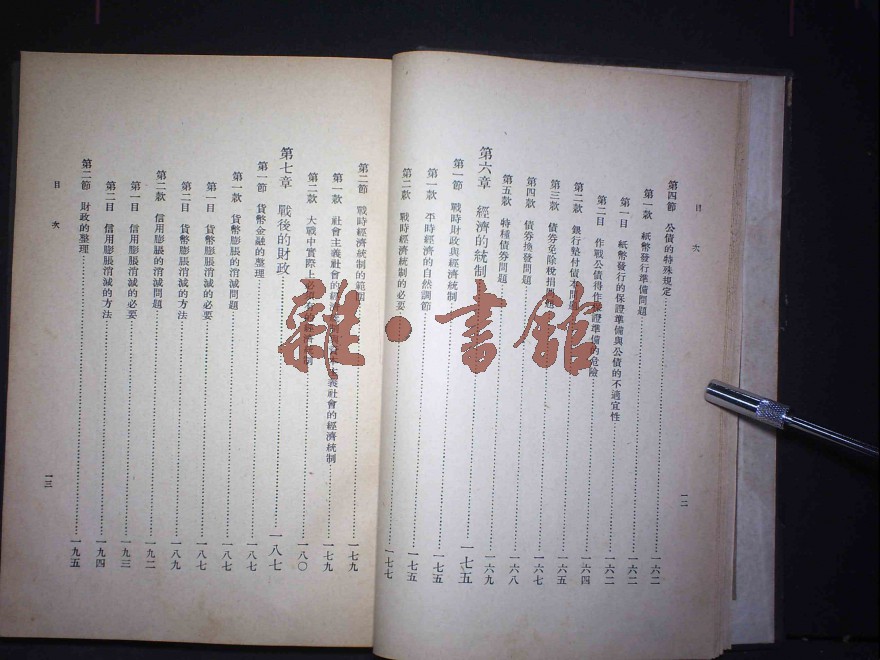 目次
第四節 公債的特殊規定……一六二
第一款 紙幣發行準備問題……一六二
第一目 紙幣發行的保證準備與公債的不適宜性……一六二
第二目 作戰公債得作保證準備的危險……一六四
第二款 銀行墊付債本問題……一六五
第三款 債券免除稅捐問題……一六七
第四款 債券換發問題……一六八
第五款 特種債券問題……一六九
第六章 經濟的統制……一七五
第一節 戰時財政與經濟統制……一七五
第一款 平時經濟的自然調節……一七五
第二款 戰時經濟統制的必要……一七七
一二
第二節 戰時經濟統制的範圍……一七九
第一款 社會主義社會的經濟 主義社會的經濟統制……一七九
第二款 大戰中實際上必 制……一八〇
第七章 戰後的財政……一八七
第一節 貨幣金融的整理……一八七
第一款 貨幣膨脹的消滅問題……一八七
第一目 貨幣膨脹消滅的必要……一八七
第二目 貨幣膨脹消滅的方法……一八九
第二款 信用膨脹的消滅問題……一九二
第一目 信用膨脹消滅的必要……一九三
第二目 信用膨脹消滅的方法……一九四
第二節 財政的整理……一九五
目次
一三
雜·書館